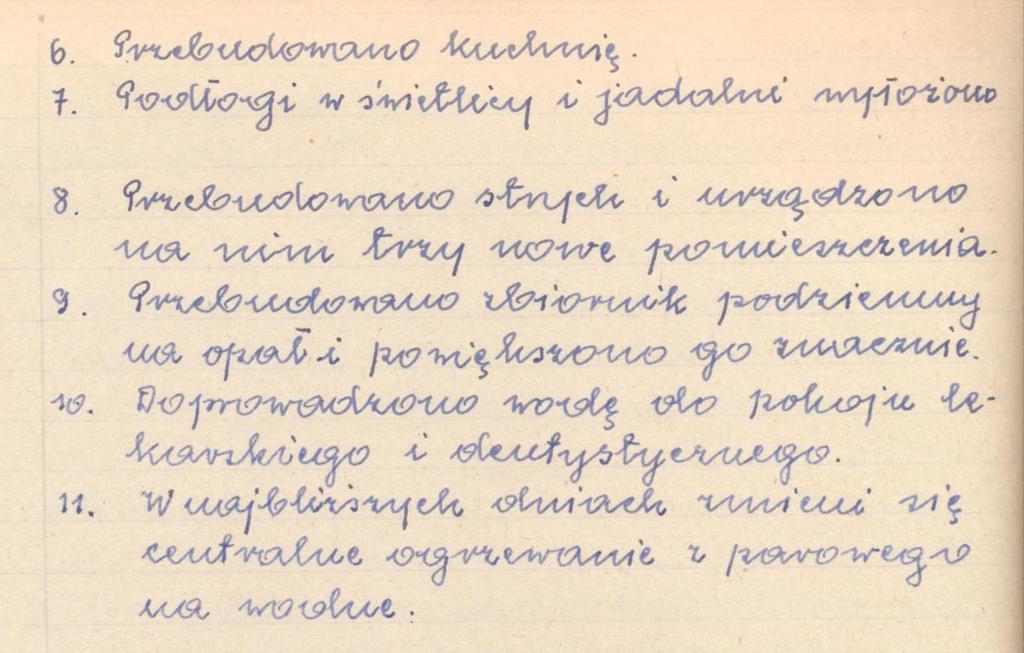 6. Przebudowano kuchnię.
7. Podłogi w świetlicy i jadalni wyłożono
8. Przebudowano strych i urządzono
na nim trzy nowe pomieszczenia.
9. Przebudowano zbiornik podziemny
na opał i powiększono go znacznie.
10. Doprowadzono wodę do pokoju le-
karskiego i dentystycznego.
11. W najbliższych dniach zmieni się
centralne ogrzewanie z parowego
na wodne.